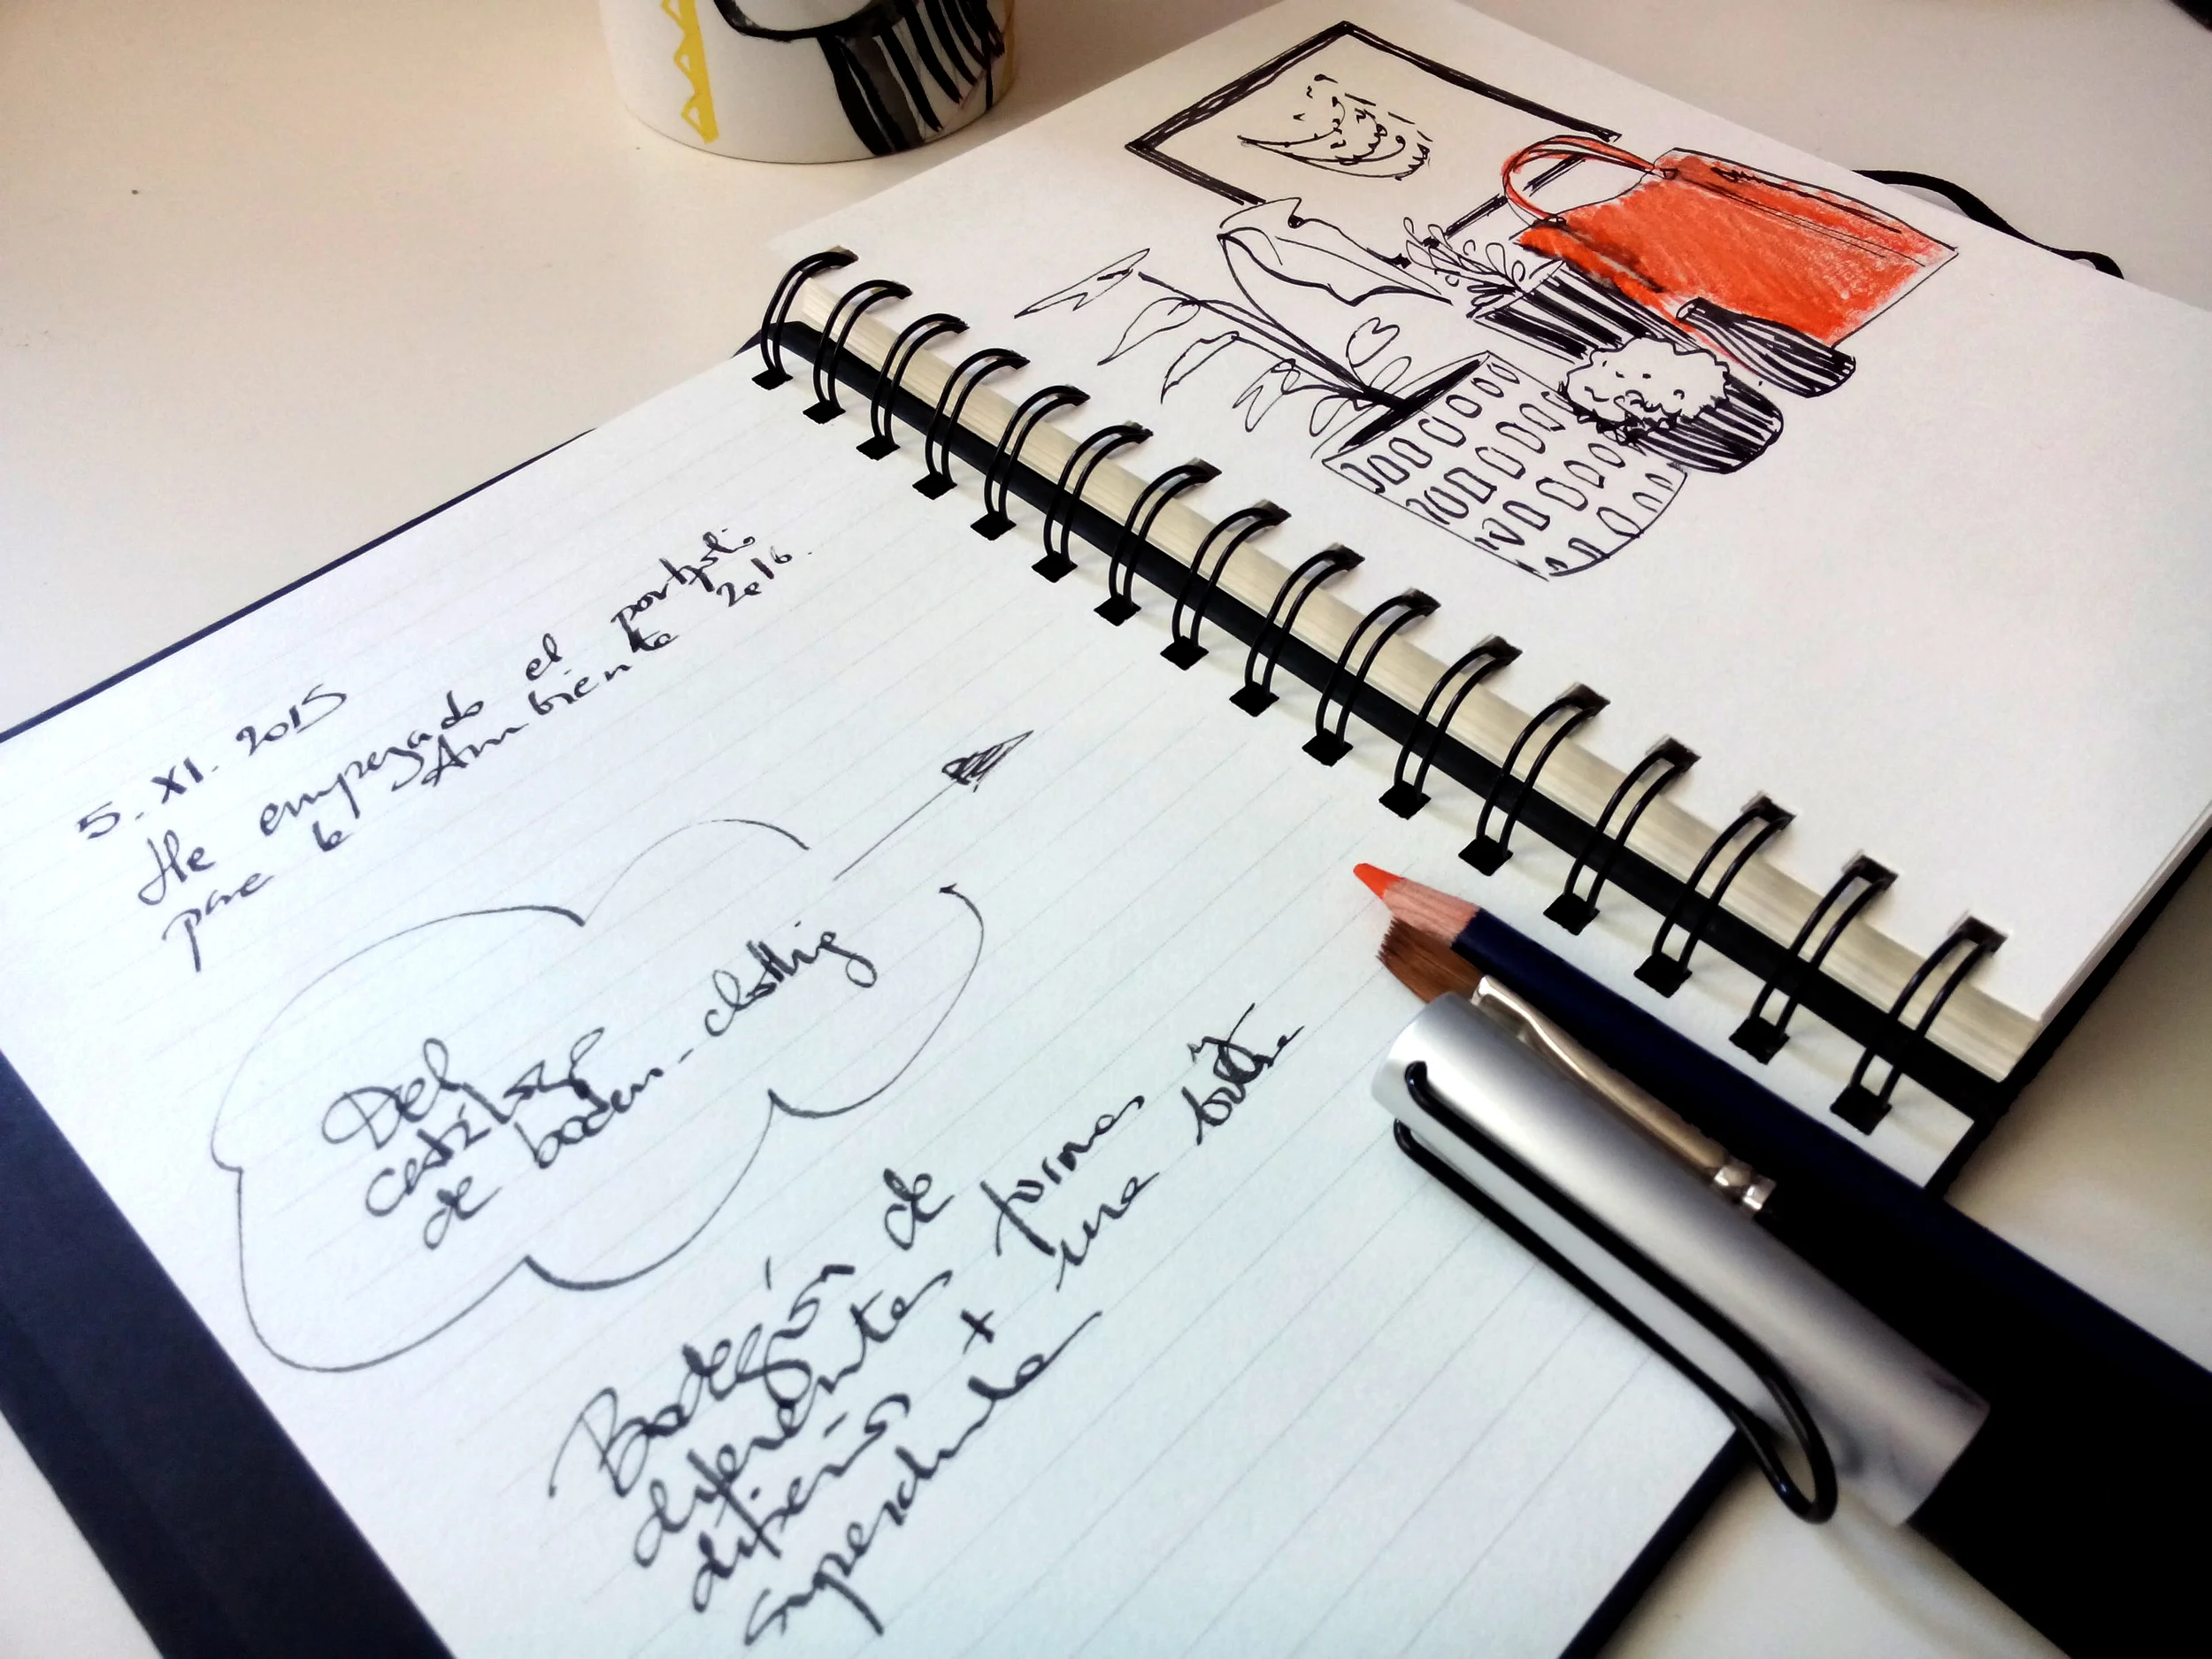 5. XI. 2015
He empezado el portfoli
para la Ambiente 2016.
Del
catálogo
de boden-clothing
Bodegón de
diferentes formas y
+ una
superchula